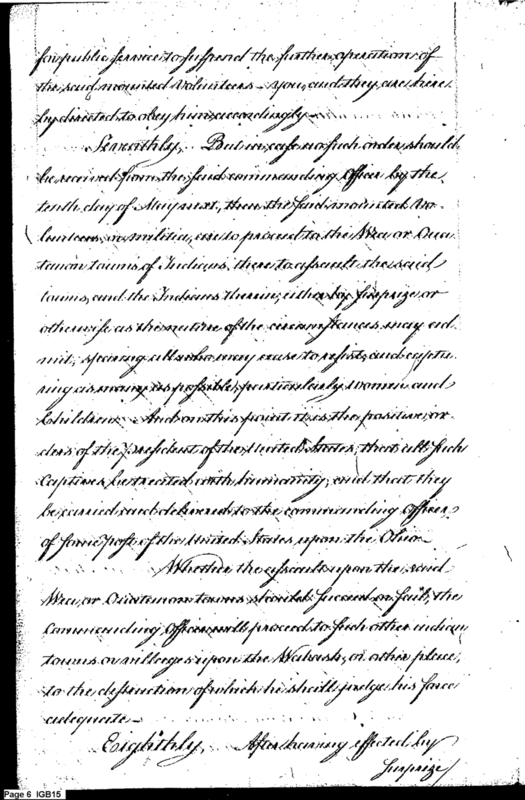 for public service to suspend the further operation of
the said mounted Volunteers — you, and they are here-
by directed to obey him accordingly —
Seventhly, But in case no such order should
be received from the said commanding Officer by the
tenth day of May next, then the said mounted Vo-
lunteers, or militia, are to proceed to the Wea or Ouia-
tanon towns of Indians, there to assault the said
towns, and the Indians therein, either by surprize, or
otherwise as the nature of the circumstances may ad-
mit, sparing all who may cease to resist, and captu-
ring as many as possible, particularly women and
Children. And on this point it is the positive or-
ders of the President of the United States, that all such
Captives be treated with humanity, and that they
be carried and delivered to the commanding Officer,
of some post of the United States upon the Ohio —
Whether the assault upon the said
Wea, or Ouiatanon towns should succeed or fail, the
Commanding Officer will proceed to such other indian
towns or villages upon the Wabash, or other place,
to the destruction of which he shall judge his force
adequate —
Eighthly, After having effected by
surprize
Page 6 IGB15